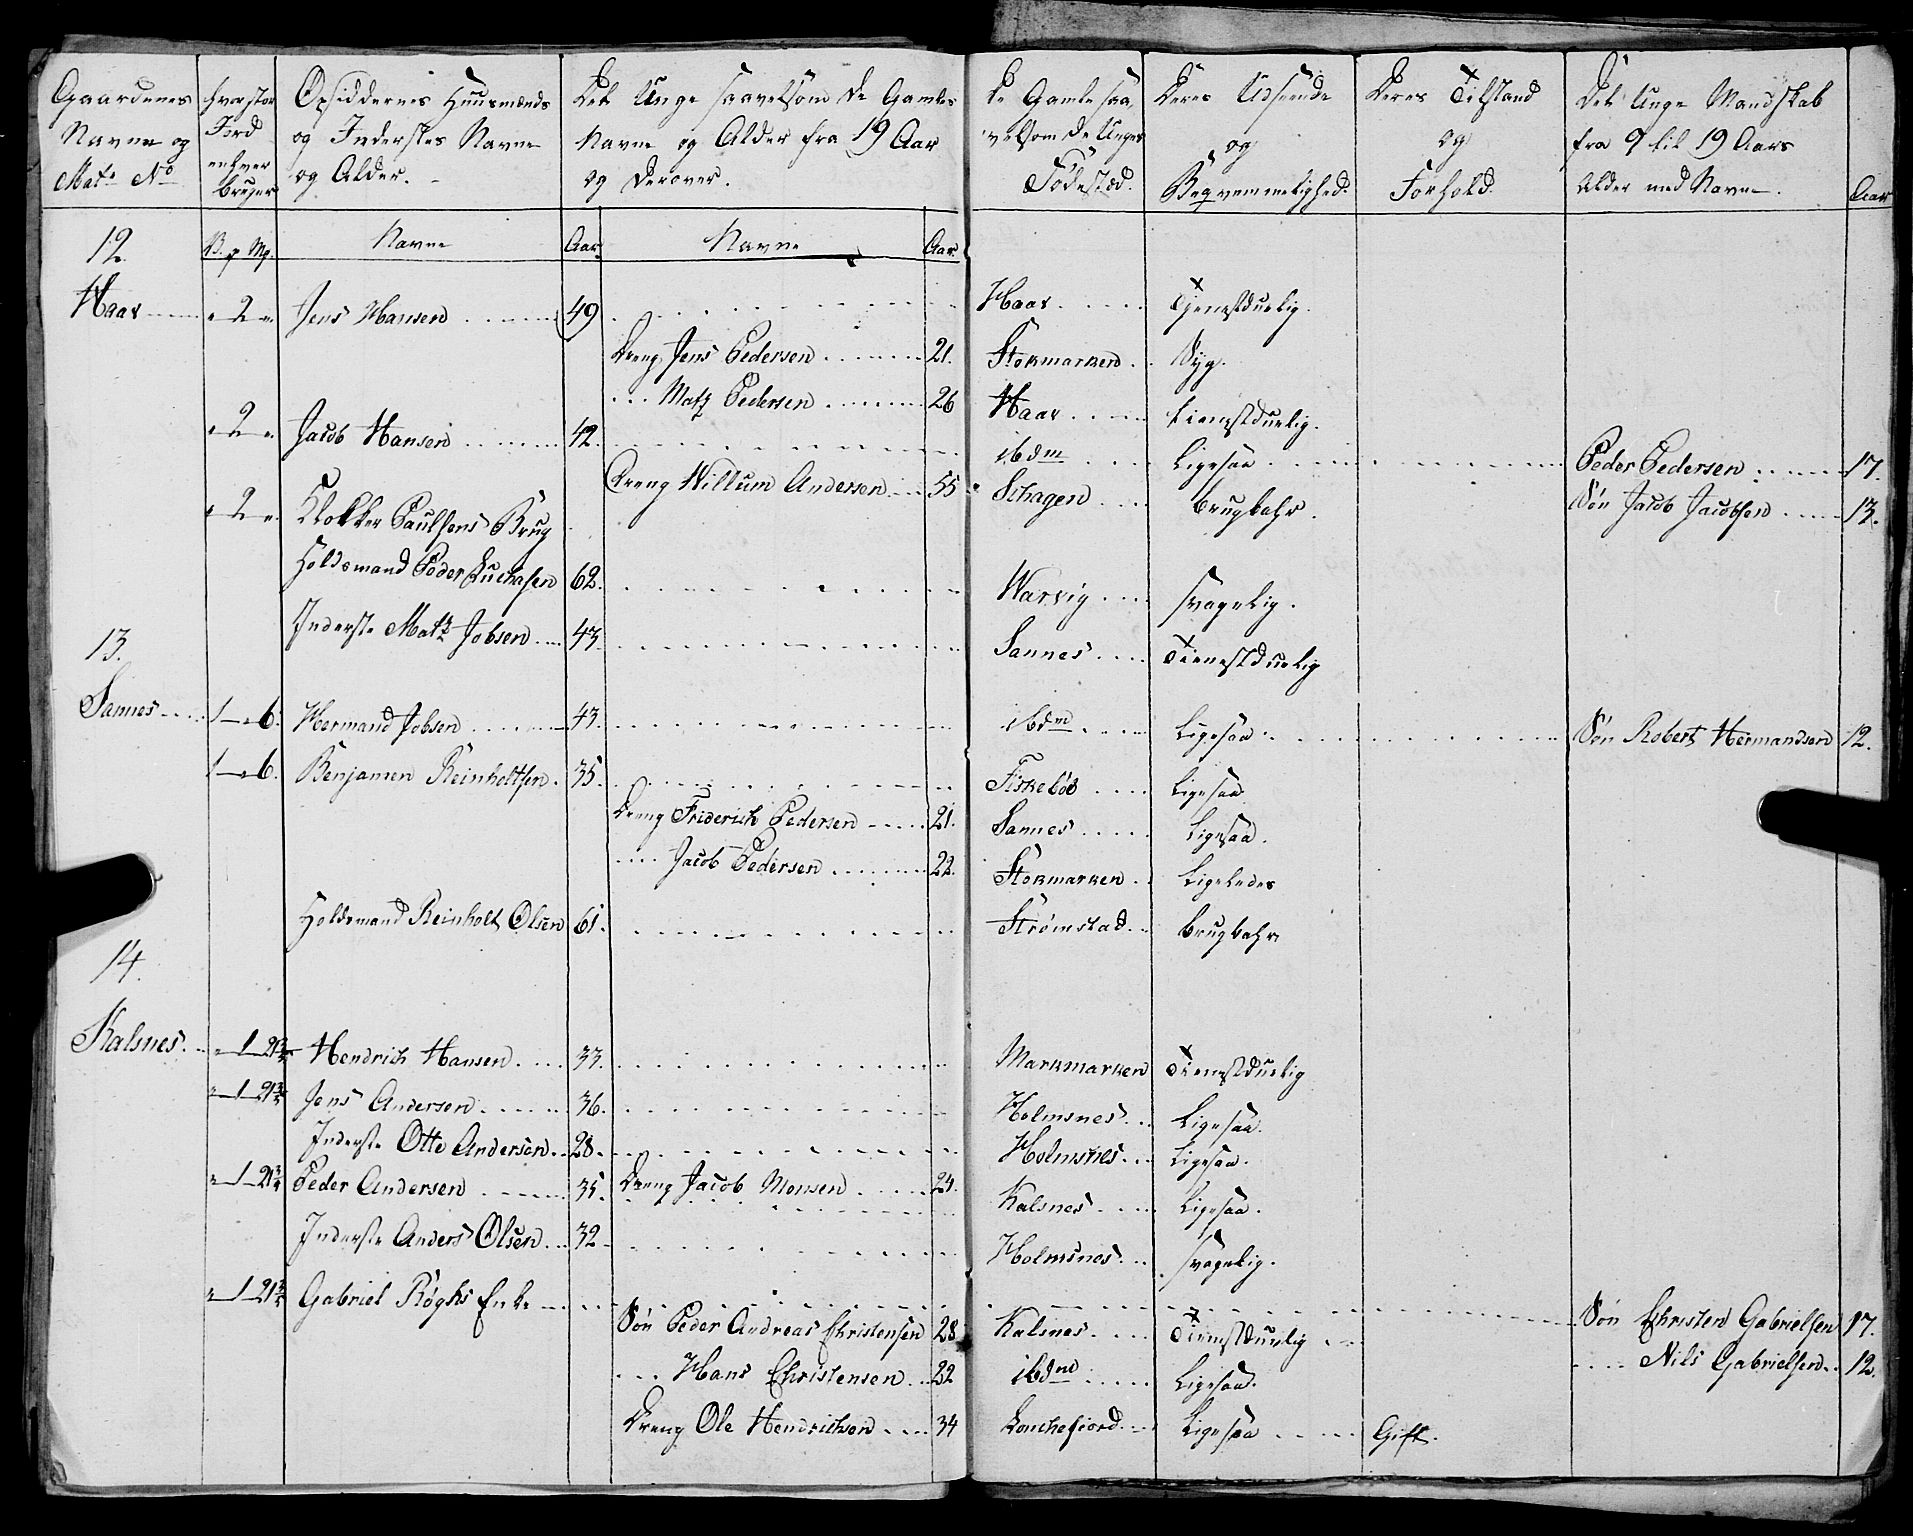 Gaardenes Navne og Mat: No
hvor stor Jord enhver bruger
Opsiddernes Huusmænds og Inderstes Navne og Alder.
Det Unge saavelsom de Gamles Navne og Alder fra 19 Aar og derover.
De Gamle saavelsom de Unges Fødestæd.
Deres Udseende og Beqvemmelighed.
Deres Tilstand og Forhold.
Det Unge Mandskab fra 9 til 19 Aars Alder med Navne.
Aar
12. B. p Mg. Navne Aar Navne Aar
Haar " 2 " Jens Hansen 49 Haar Tjenestduelig.
Dreng Jens Pedersen 21. Stokmarken Syg.
Matz Pedersen 26 Haar tienestduelig.
" 2 " Jacob Hansen 42. ibdm Ligesaa Peder Pedersen 17.
Dreng Willum Andersen 55 Schagen brugbahr. Søn Jacob Jacobsen 13.
" 2 " Klokker Paulsens Brug
Holdsmand Peder Luchasen 62. Warvig svagelig.
Inderste Matz Jobsen 43. Sannes Tienestduelig
13.
Sannes 1 " 6. Hermand Jobsen 43. ibdm Ligesaa Søn Robert Hermandsen 12.
1 " 6. Benjamen Reinholtsen 35. Fiskebøe Ligesaa
Dreng Friderich Pedersen 21. Sannes Ligesaa.
Jacob Pedersen 22. Stokmarken Ligeledes
Holdsmand Reinholt Olsen 61. Strömstad brugbahr
14.
Kalsnes " 1 21 3/4 Hendrich Hansen 33. Markmarken Tienestduelig
" 1 21 3/4 Jens Andersen 36. Holmsnes Ligesaa.
Inderste Otte Andersen 28. Holmsnes Ligesaa.
" 1 21 3/4 Peder Andersen 35. Dreng Jacob Monsen 24. Kalsnes Ligesaa.
Inderste Anders Olsen 32 Holmsnes svagelig.
" 1 21 3/4 Gabriel Røghs Enke Søn Christen Gabrielsen 17.
Søn Peder Andreas Christensen 28 Kalsnes Tienestduelig
Nils Gabrielsen 12.
Hans Christensen 22 ibdm Ligesaa.
Dreng Ole Hendrichsen 34 Ligesaa Gift.